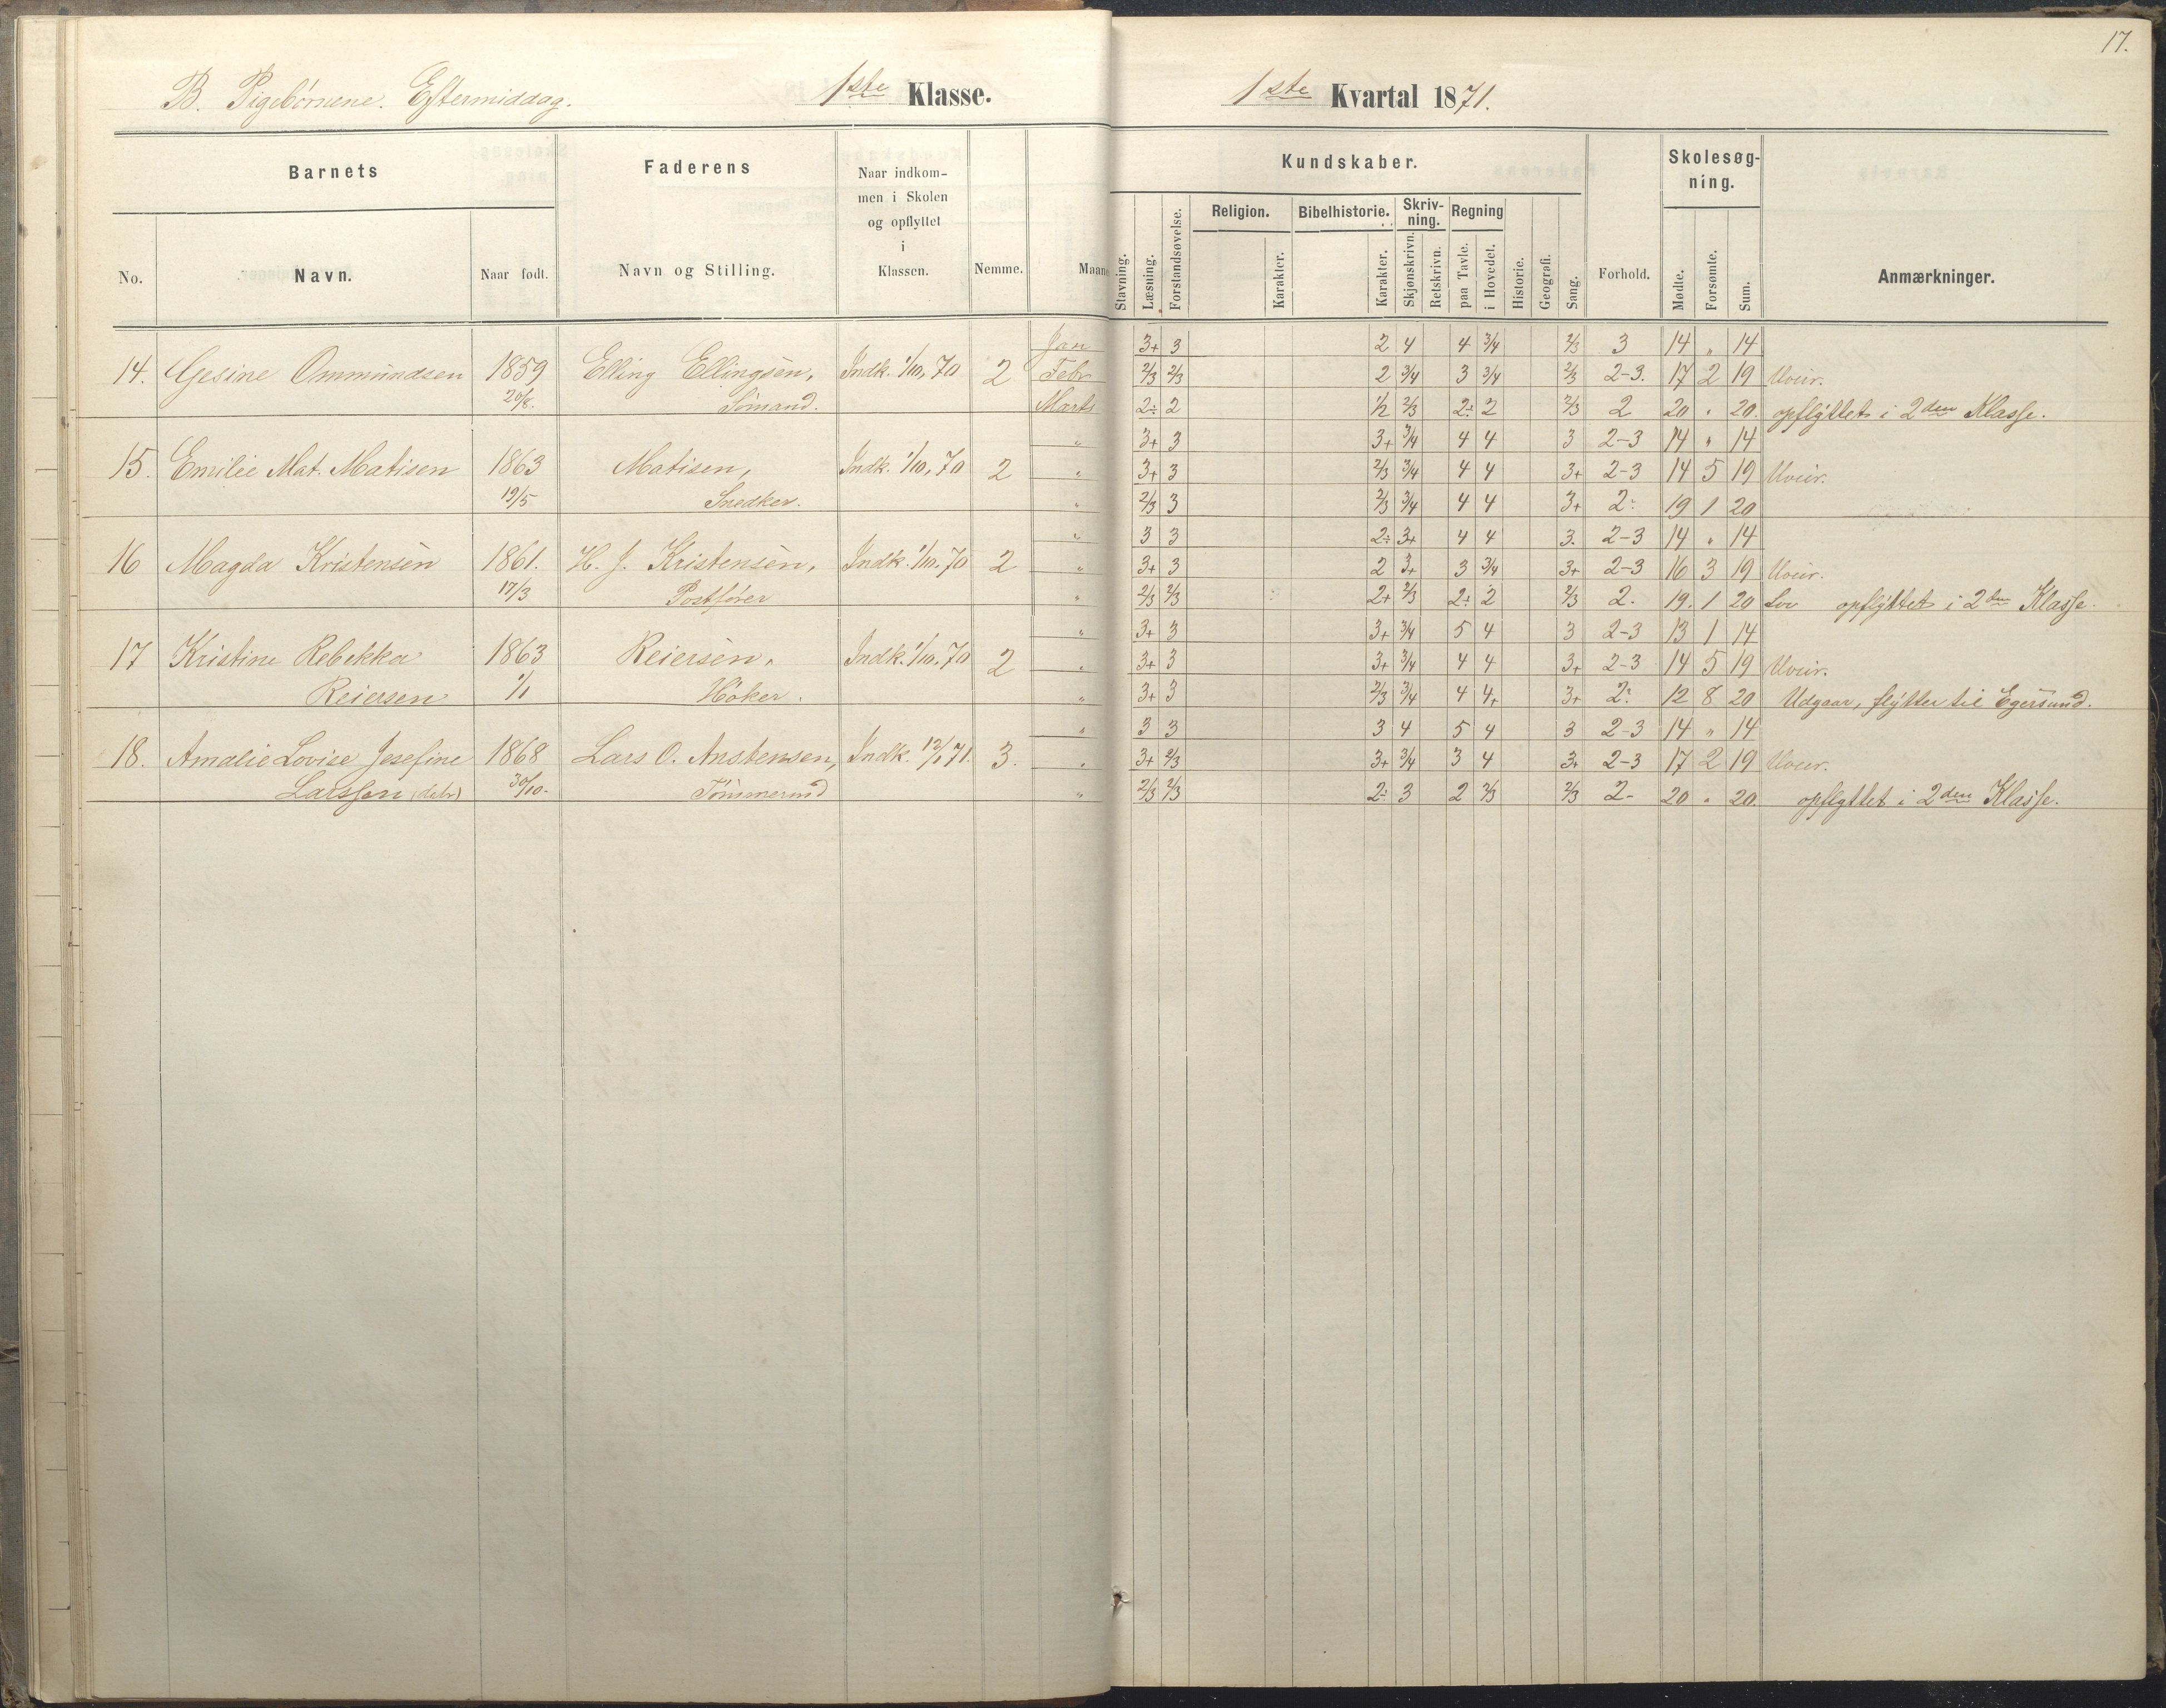 17.
B. Pigebørnene. Eftermiddag. 1ste Klasse. 1ste Kvartal 1871.
Barnets Faderens Naar indkommen i Skolen og opflyttet i Klassen. Nemme. Maane Kundskaber. Forhold. Skolesøgning. Anmærkninger.
No. Navn. Naar født. Navn og Stilling. Stavning. Læsning. Forstandsøvelse. Religion. Karakter. Bibelhistorie. Karakter. Skrivning. Skjønskrivn. Retskrivn. Regning paa Tavle. i Hovedet. Historie. Geografi. Sang. Mødte. Forsømte. Sum.
Jan 3+ 3 2 4 4 3/4 2/3 3 14 " 14
14. Gesine Ommundsen 1859 Elling Ellingsen, Indk. 1/10, 70 2 Febr 2/3 2/3 2 3/4 3 3/4 2/3 2-3. 17 2 19 Uveir.
20/8. Sømand. Marts 2÷ 2 1/2 2/3 2÷ 2 2/3 2 20 " 20. opflyttet i 2den Klasse.
" 3+ 3 3+ 3/4 4 4 3 2-3 14 " 14
15. Emilie Mat. Matisen 1863 Matisen, Indk. 1/10, 70 2 " 3+ 3 2/3 3/4 4 4 3+ 2-3 14 5 19 Uveir.
19/5 Snedker. " 2/3 3 2/3 3/4 4 4 3+ 2÷ 19 1 20
" 3 3 2÷ 3+ 4 4 3. 2-3 14 " 14
16 Magda Kristensen 1861. H. J. Kristensen, Indk. 1/10. 70 2 " 3+ 3 2 3+ 3 3/4 3+ 2-3 16 3 19 Uveir.
17/3 Postfører " 2/3 2/3 2+ 2/3 2÷ 2 2/3 2. 19. 1 20 Lov opflyttet i 2den Klasse.
" 3+ 3 3+ 3/4 5 4 3 2-3 13 1 14
17 Kristine Rebekka 1863 Reiersen, Indk. 1/10, 70 2 " 3+ 3 3+ 3/4 4 4 3+ 2-3 14 5 19 Uveir.
Reiersen 1/1 Höker. " 3+ 3 2/3 3/4 4 4+ 3+ 2÷ 12 8 20 Udgaar, flytter til Egersund.
" 3 3 3 4 5 4 3 2-3 14 " 14
18. Amalie Lovise Josefine 1868 Lars O. Anstensen, Indk. 12/1 71. 3. " 3+ 2/3 3+ 3/4 3 4 3+ 2-3 17 2 19 Uveir.
Larssen 30/10. Tømmermd " 2/3 2/3 2÷ 3 2 2/3 2/3 2- 20 " 20. opflyttet i 2den Klasse.